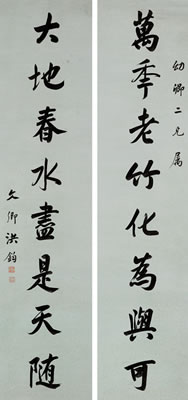 幼卿二兄属
萬秊老竹化為與可
大地春水盡是天随
文卿洪鈞